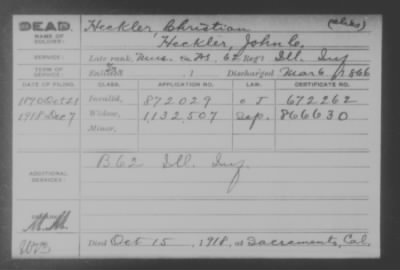 DEAD. Heckler, Christian (alias)
NAME OF SOLDIER: Heckler, John C.
SERVICE: Late rank, Mus. Co. M, 62 Reg't Ill. Inf
TERM OF SERVICE: Enlisted , 1 Discharged Mar 6, 1866
DATE OF FILING. CLASS. APPLICATION NO. LAW. CERTIFICATE NO.
1890 Oct 23 Invalid, 872029 J 672262
1918 Dec 7 Widow, 1,132,507 Sep. 866630
Minor,
ADDITIONAL SERVICES: B 62 Ill. Inf
M.M.
Died Oct 15, 1918, at Sacramento, Cal.